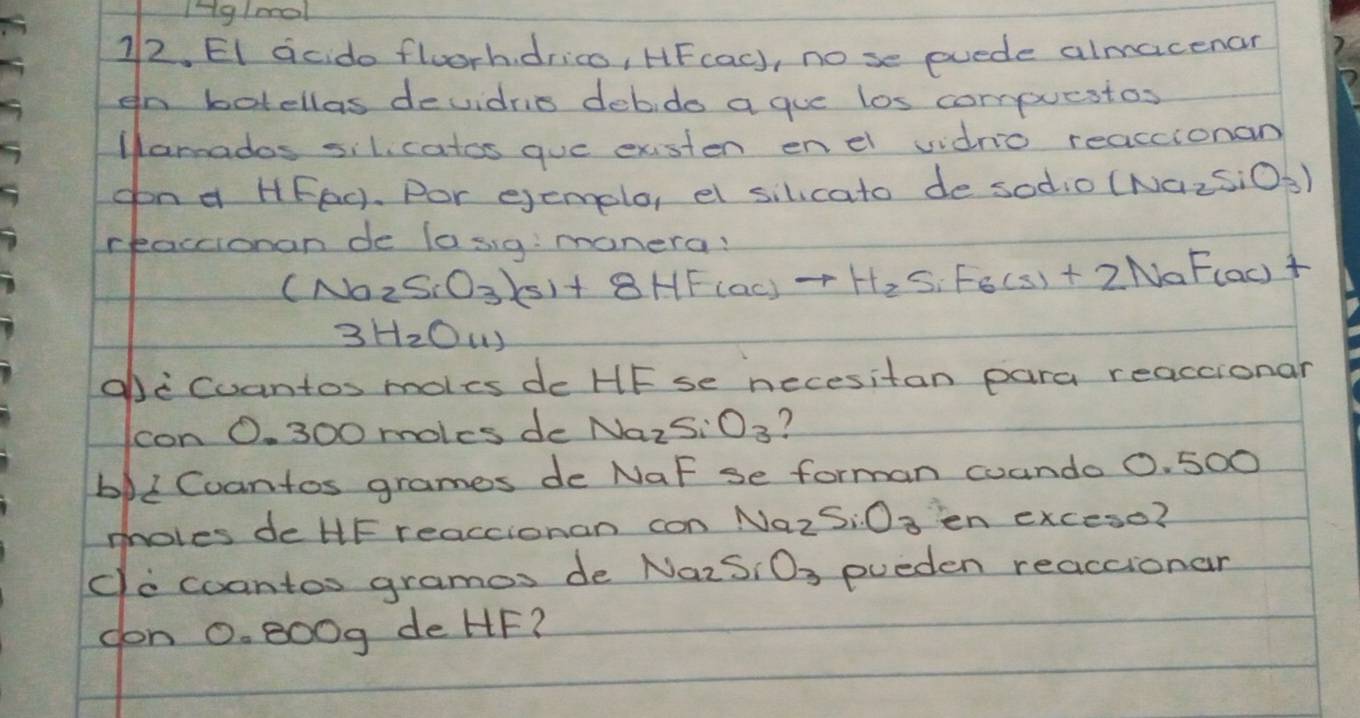 14g/mol
12. El ácido fluorhidrico, HF(ac), no se puede almacenar
en botellas de vidrio debido a que los compuestos
llamados silicatos que existen en el vidrio reaccionan
con el HF(ac). Por ejemplo, el silicato de sodio (Na₂SiO₃)
reaccionan de la sig: manera:
(Na₂SiO₃)(s) + 8HF(ac) → H₂SiF₆(s) + 2NaF(ac) +
3H₂O(l)
a) ¿Cuantos moles de HF se necesitan para reaccionar
con 0.300 moles de Na₂SiO₃?
b) ¿Cuantos gramos de NaF se forman cuando 0.500
moles de HF reaccionan con Na₂SiO₃ en exceso?
c) ¿cuantos gramos de Na₂SiO₃ pueden reaccionar
con 0.800g de HF?